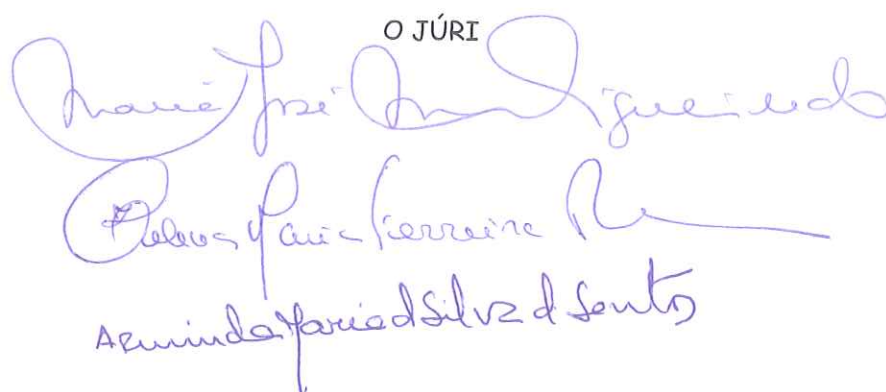 O JÚRI
Maria José Figueiredo
Maria Ferreira
Arminda Maria d Silva d Santos